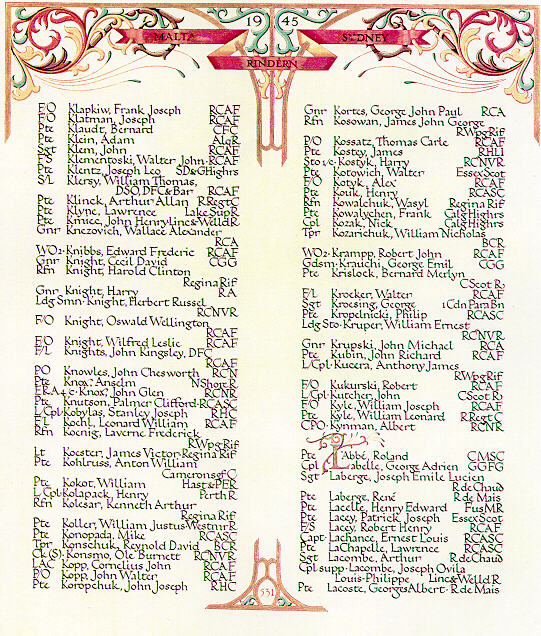 MALTA 19 45 SYDNEY
RINDERN
F/O Klapkiw, Frank Joseph RCAF
F/O Klatman, Joseph RCAF
Pte Klaudt, Bernard CFC
Pte Klein, Adam AlqR
Sgt Klem, John RCAF
F/S Klementoski, Walter John·RCAF
Pte Klentz, Joseph Leo SD&GHighrs
S/L Klersy, William Thomas,
DSO, DFC & Bar RCAF
Pte Klinck, Arthur Allan RRegtC
Pte Klyne, Lawrence LakeSupR
Pte Kmiec, John Henry·Linc&WelldR
Gnr Knezovich, Wallace Alexander
RCA
WO2·Knibbs, Edward Frederic RCAF
Gnr Knight, Cecil David CGG
Rfn Knight, Harold Clinton
ReginaRif
Gnr Knight, Harry RA
Ldg Smn·Knight, Herbert Russel
RCNVR
F/O Knight, Oswald Wellington
RCAF
F/O Knight, Wilfred Leslie RCAF
F/L Knights, John Kingsley, DFC
RCAF
PO Knowles, John Chesworth RCN
Pte Knox, Anselm NShoreR
ERA4/c·Knox, John Glen RCNR
Pte Knutson, Palmer Clifford·RCASC
L/Cpl·Kobylas, Stanley Joseph RHC
F/L Koehl, Leonard William RCAF
Rfn Koenig, Laverne Frederick
RWpgRif
Lt Koester, James Victor·ReginaRif
Pte Kohlruss, Anton William
CameronsofC
Pte Kokot, William Hast&PER
L/Cpl·Kolapack, Henry PerthR
Rfn Kolesar, Kenneth Arthur
ReginaRif
Pte Koller, William Justus·WestmrR
Pte Konopada, Mike RCASC
Tpr Konschuk, Reynold David BCR
Ck(S)·Konsmo, Ole Burnett RCNVR
LAC Kopp, Cornelius John RCAF
P/O Kopp, John Walter RCAF
Pte Koropchuk, John Joseph RHC
Gnr Kortes, George John Paul RCA
Rfn Kosowan, James John George
RWpgRif
P/O Kossatz, Thomas Carle RCAF
Pte Kostey, James RHLI
Sto1/c·Kostyk, Harry RCNVR
Pte Kotowich, Walter EssexScot
F/O Kotyk, Alex RCAF
Pte Kouk, Henry RCASC
Rfn Kowalchuk, Wasyl ReginaRif
Pte Kowalychen, Frank CalgHighrs
Cpl Kozak, Nick CalgHighrs
Tpr Kozarichuk, William Nicholas
BCR
WO2·Krampp, Robert John RCAF
Gdsm·Krauchi, George Emil CGG
Pte Krislock, Bernard Merlyn
CScotR
F/L Kroeker, Walter RCAF
Sgt Kroesing, George 1CdnParaBn
Pte Kropelnicki, Philip RCASC
Ldg Sto·Kruper, William Ernest
RCNVR
Gnr Krupski, John Michael RCA
Pte Kubin, John Richard RCAF
L/Cpl·Kucera, Anthony James
RWpgRif
F/O Kukurski, Robert RCAF
L/Cpl·Kutcher, John CScotR
F/O Kyle, William Joseph RCAF
Pte Kyle, William Leonard RRegtC
CPO·Kynman, Albert RCNR
Pte L'Abbé, Roland CMSC
Cpl Labelle, George Adrien GGFG
Sgt Laberge, Joseph Emile Lucien
RdeChaud
Pte Laberge, René RdeMais
Pte Lacelle, Henry Edward FusMR
Pte Lacey, Patrick, Joseph EssexScot
F/S Lacey, Robert Henry RCAF
Capt·Lachance, Ernest Louis RCASC
Pte LaChapelle, Lawrence RCASC
Sgt Lacombe, Arthur RdeChaud
Cpl supp·Lacombe, Joseph Ovila
Louis-Philippe Linc&WelldR
Pte Lacoste, GeorgesAlbert·RdeMais
551